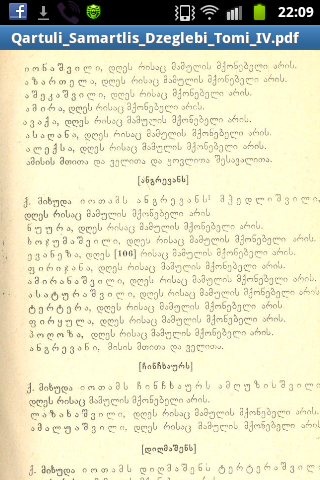 22:09
Qartuli_Samartlis_Dzeglebi_Tomi_IV.pdf
იონაშვილი, დღეს რისაც მამულის მქონებელი არის.
აზართელა, დღეს რისაც მამულის მქონებელი არის.
აშეკაშვილი, დღეს რისაც მამულის მქონებელი არის.
ამირა, დღეს რისაც მამულის მქონებელი არის.
ავაქა, დღეს რისაც მამულის მქონებელი არის.
ასადანა, დღეს რისაც მამულის მქონებელი არის.
ალექსა, დღეს რისაც მამულის მქონებელი არის.
ამისის მთითა და ველითა და ყოვლითა შესავალითა.
[ანგრევანს]
ქ. მიხუდა იოთამს ანგრევანს¹ მჭედლიშვილი,
დღეს რისაც მამულის მქონებელი არის
ნუურა, დღეს რისაც მამულის მქონებელი არის.
ხოჯუმაშვილი, დღეს რისაც მამულის მქონებელი არის.
ევანეზა, დღეს [106] რისაც მამულის მქონებელი არის.
ფირიჯანა, დღეს რისაც მამულის მქონებელი არის.
ამირანაშვილი, დღეს რისაც მამულის მქონებელი არის.
ასატურაშვილი, დღეს რისაც მამულის მქონებელი არის.
ტერტერა, დღეს რისაც მამულის მქონებელი არის.
ფირყულა, დღეს რისაც მამულის მქონებელი არის.
პოღოზა, დღეს რისაც მამულის მქონებელი არის.
ანგრევანი, მისის მთითა და ველითა.
[ჩინჩხაურს]
ქ. მიხუდა იოთამს ჩინჩხაურს ამღუზისშვილი
დღეს რისაც მამულის მქონებელი არის.
ლაზახაშვილი, დღეს რისაც მამულის მქონებელი არის.
ამალფაშვილი, დღეს რისაც მამულის მქონებელი არის.
[დიღმაშენს]
ქ. მიხუდა იოთამს დიღმაშენს ტერტერაშვილი
დღეს რისაც მამულის მქონებელი არის.